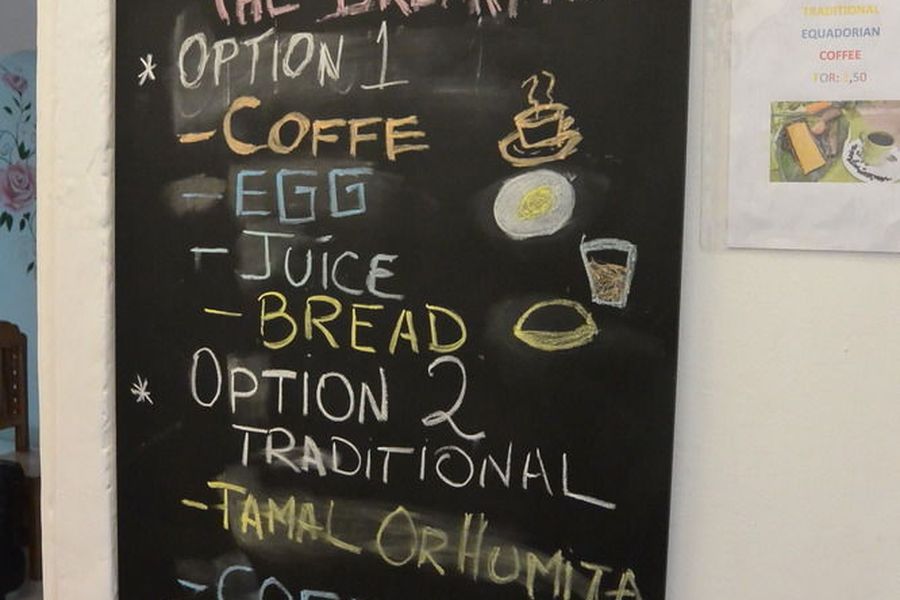 THE BREAKFA
* OPTION 1
- COFFE
- EGG
- JUICE
- BREAD
* OPTION 2
TRADITIONAL
- TAMAL OR HUMITA
TRADITIONAL
EQUADORIAN
COFFEE
FOR: 2,50